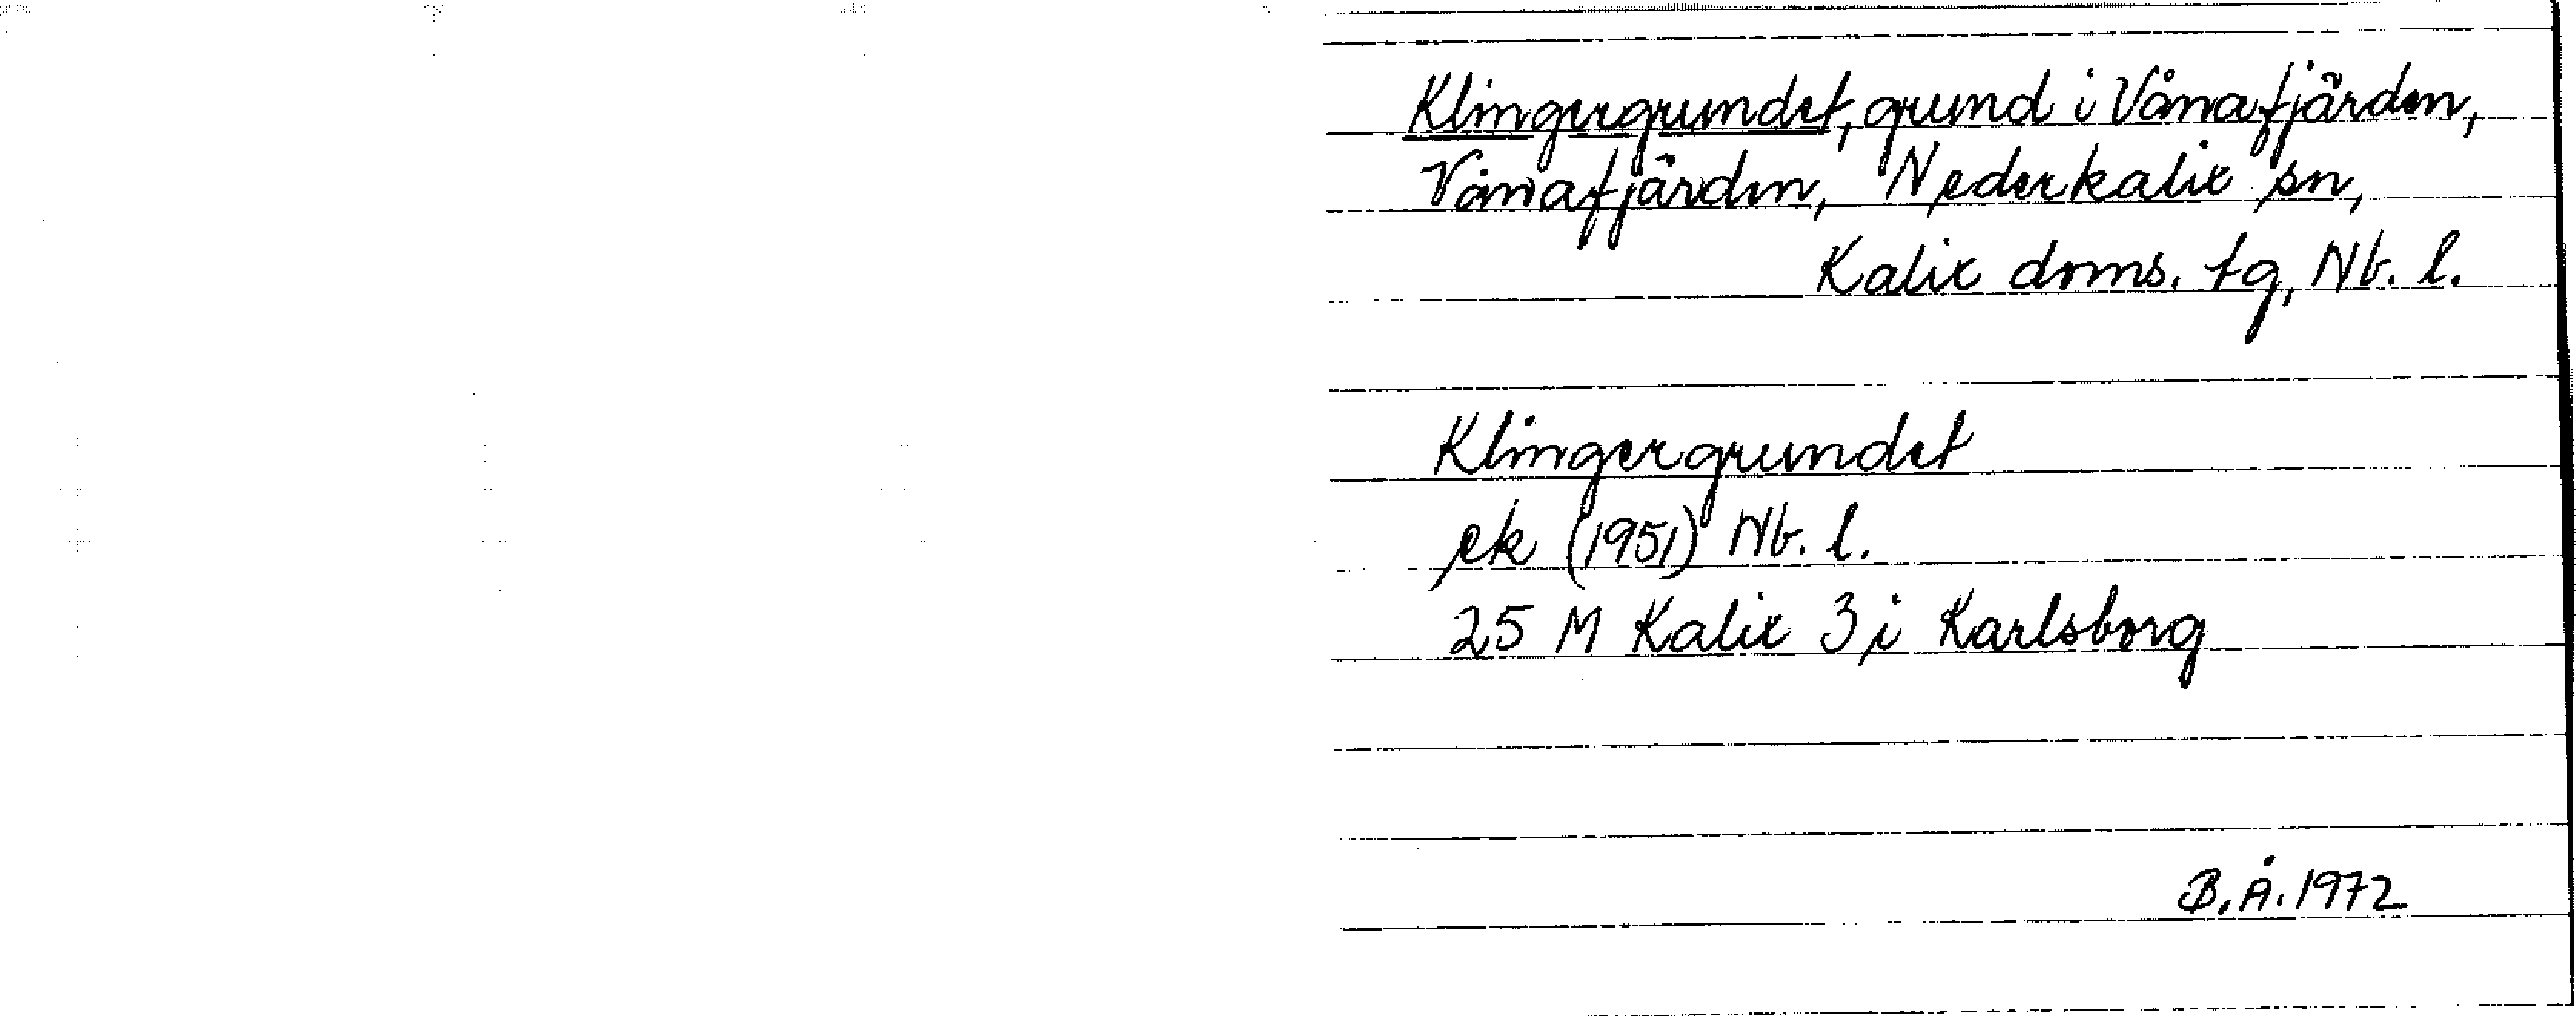 Klingergrundet, grund i Vånafjärden,
Vånafjärden, Nederkalix sn,
Kalix doms. tg, Nb. l.
Klingergrundet
ek (1951) Nb. l.
25 M Kalix 3 i Karlsborg
B. Å. 1972